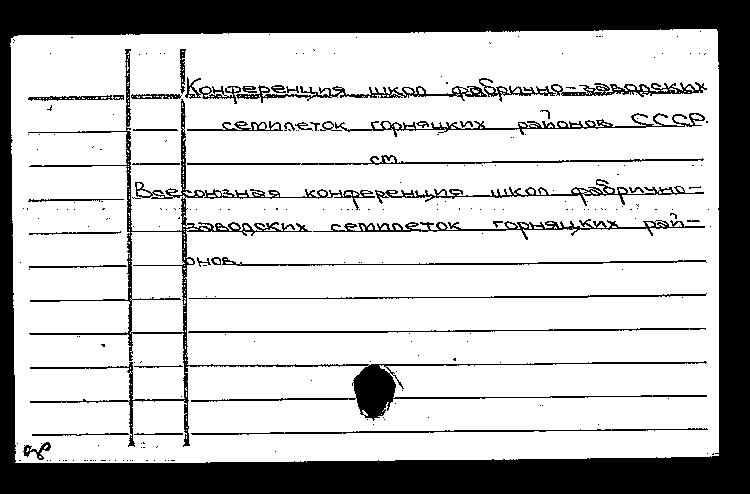 Конференция школ фабрично-заводских
семилеток горняцких районов СССР.
см.
Всесоюзная конференция школ фабрично-
заводских семилеток горняцких рай-
онов.